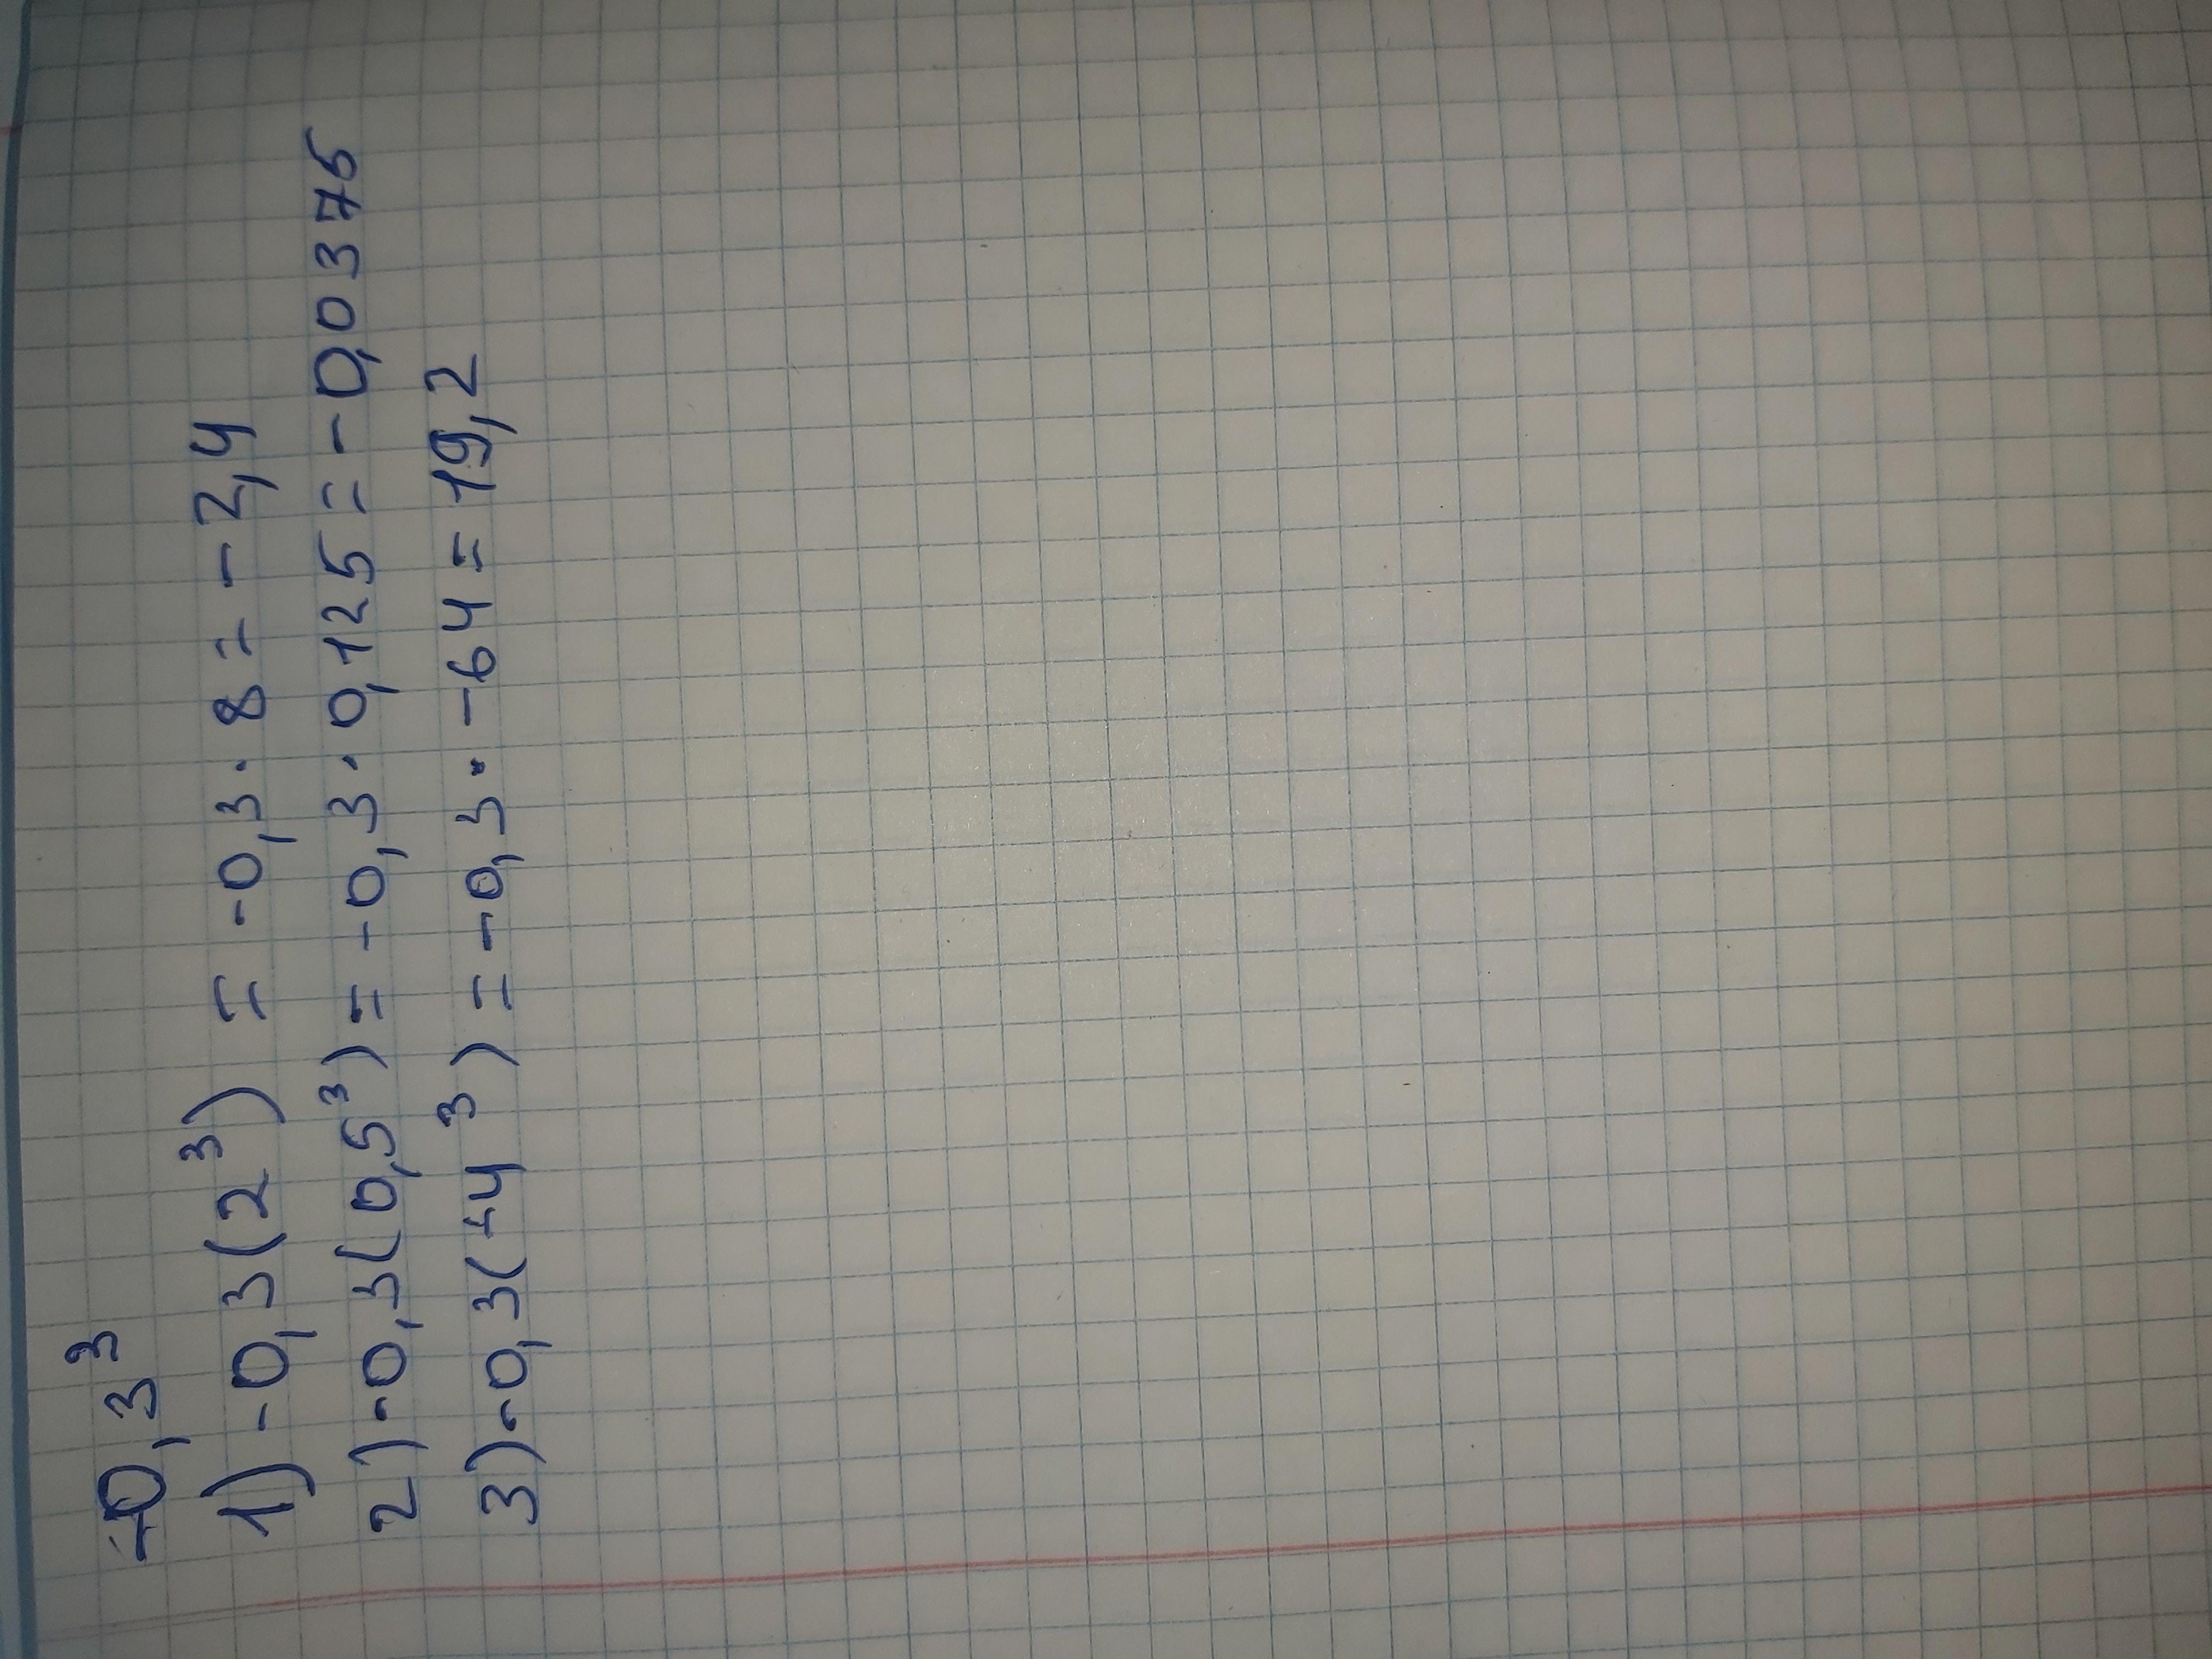 -0,3³
1) -0,3(2³) = -0,3·8 = -2,4
2) -0,3(0,5³) = -0,3·0,125 = -0,0375
3) -0,3(-4³) = -0,3·-64 = 19,2